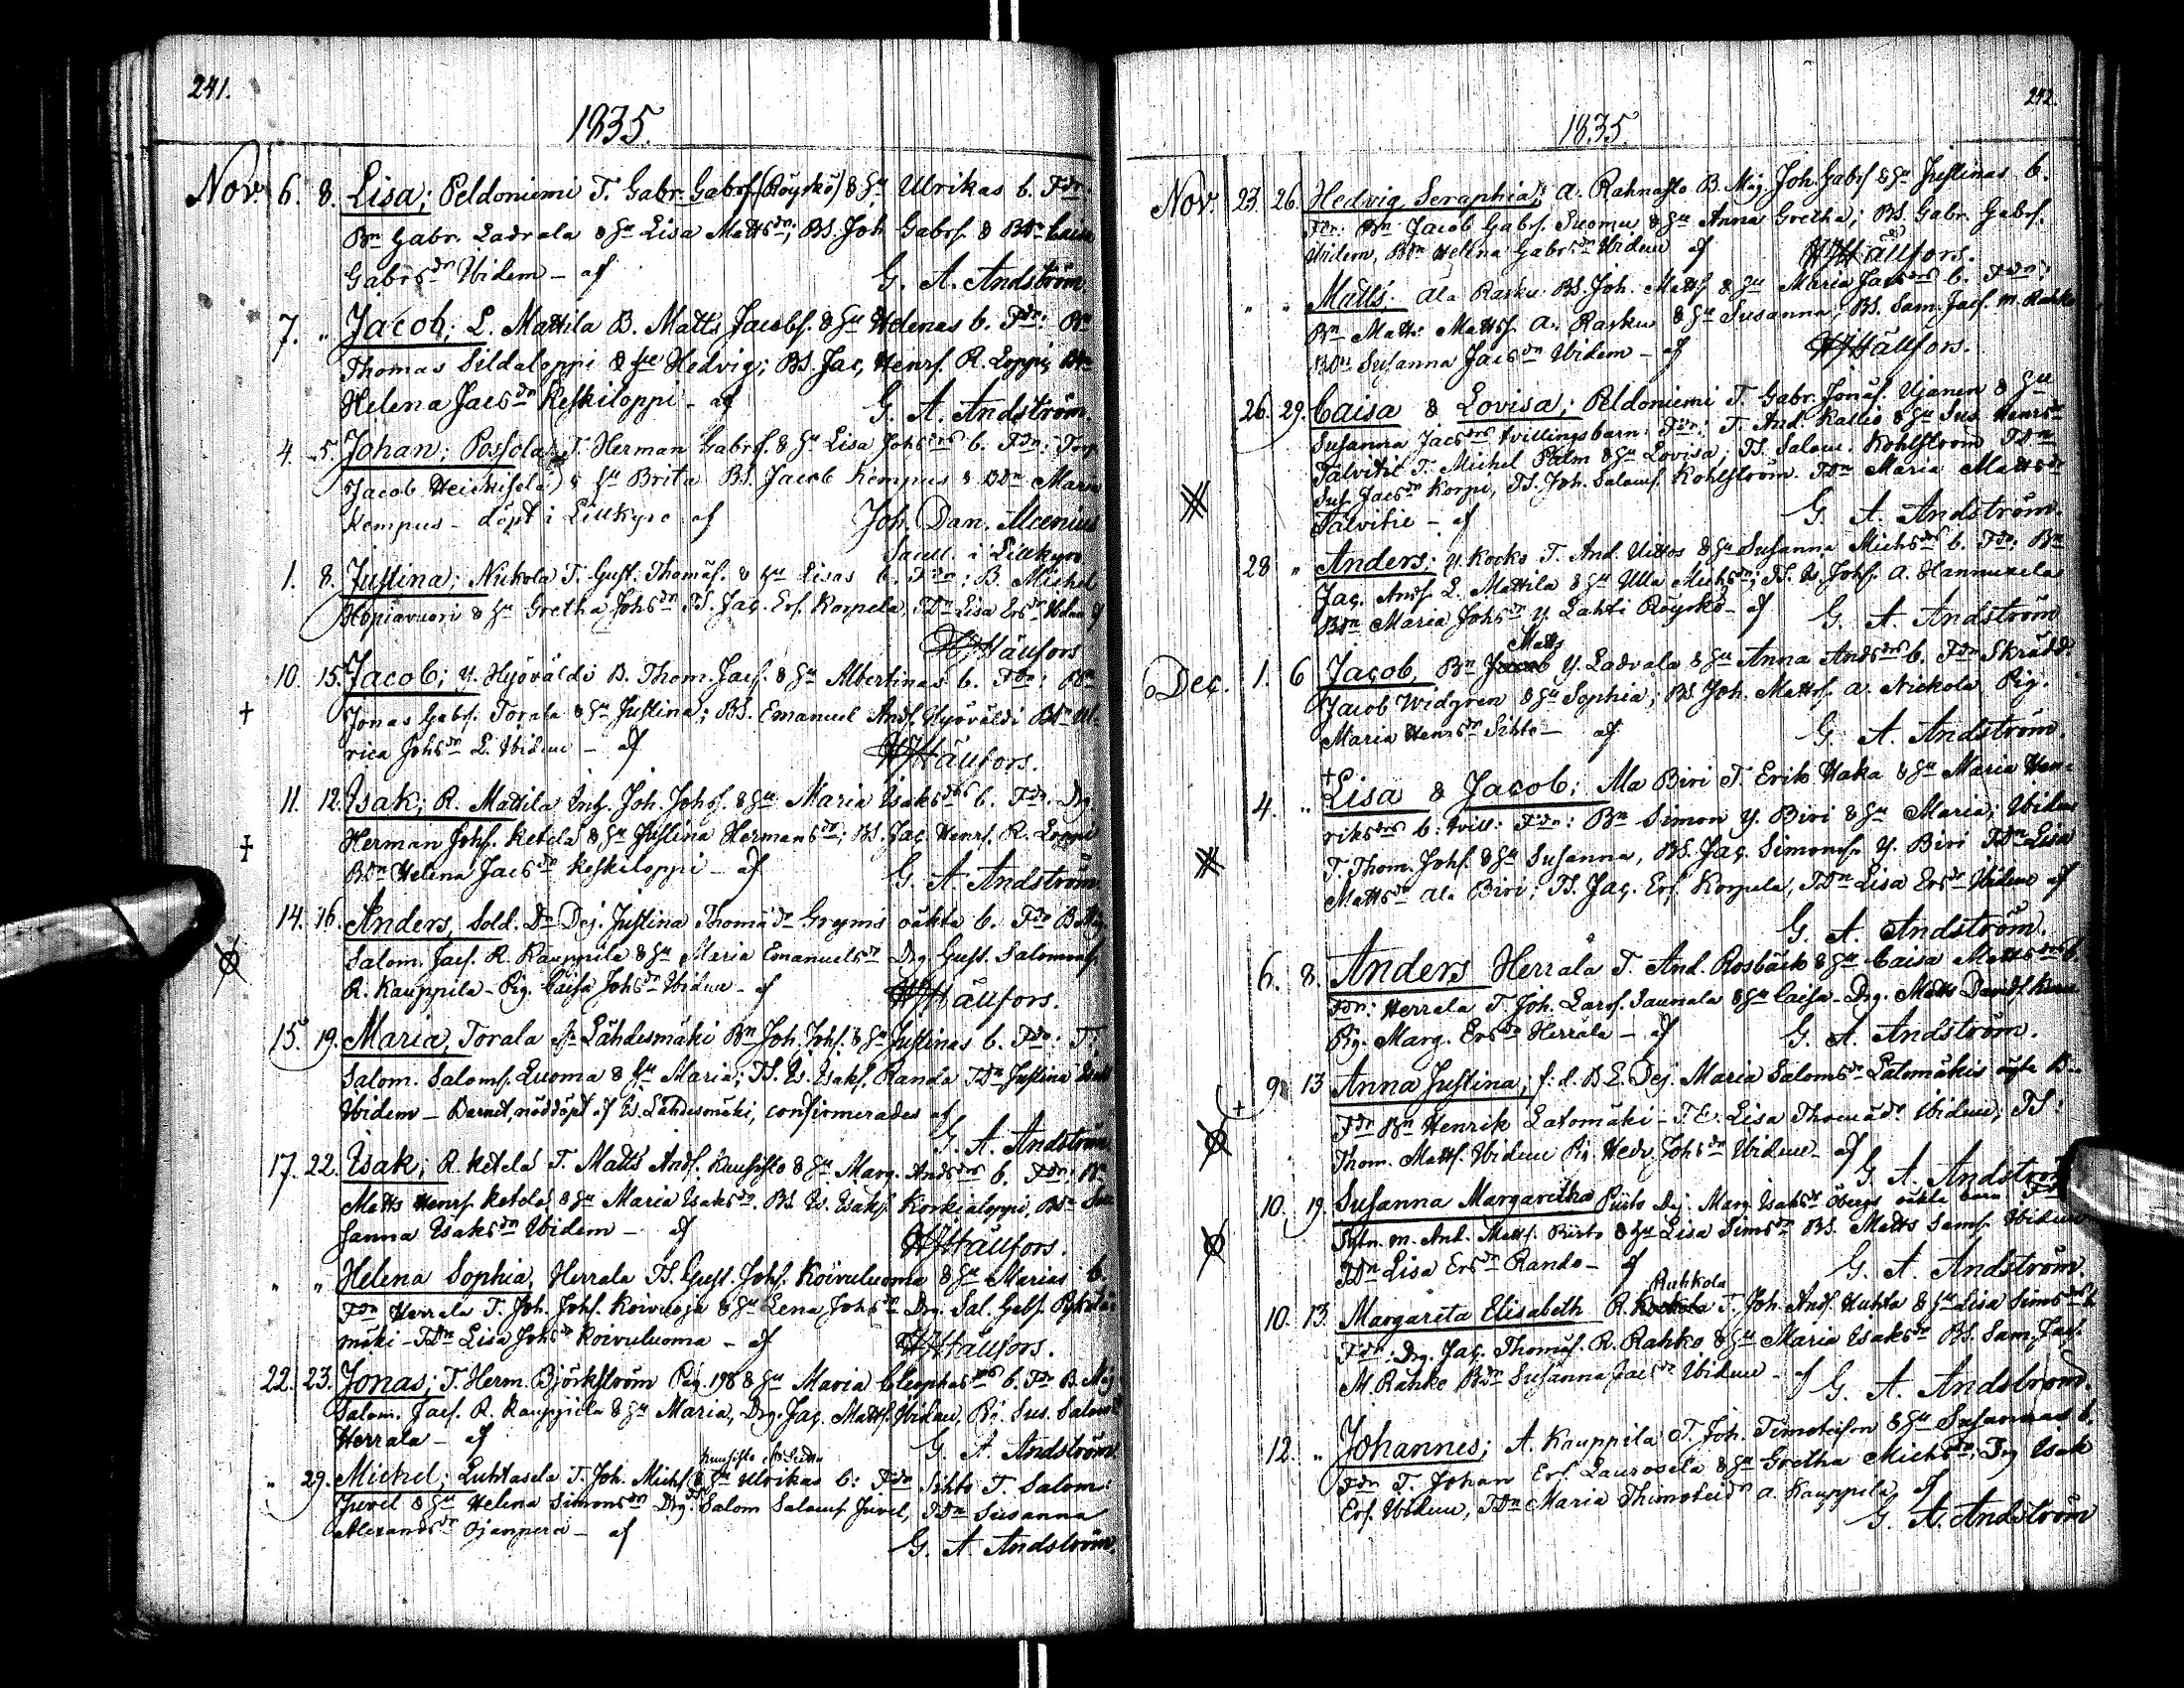 241.
1835.
Nov. 6. 8. Lisa; Peldoniemi T. Gabr. Gabrs. (Röyskö) & Hu Ulrikas b. Fdr:
Bn Gabr. Ladvala & Hu Lisa Mattsdr; BS. Joh. Gabrs. & BDr Caisa
Gabrsdr Ibidem – af G. A. Andström.
7. " Jacob; L. Mattila B. Matts Jacobs. & Hu Helenas b. Fdr: Bn
Thomas Sildaloppi & Hu Hedvig; BS. Jac. Henrs. R. Loppi, BDr
Helena Jacsdr Keskiloppi – af G. A. Andström.
4. 5. Johan; T. Herman Gabrs. & Hu Lisa Johsdrs b. Fdr:
Jacob Heickiselä & Hu Brita BS. Jacob Kempus & BDr Maria
Kempus – döpt i Lillkyro af Joh. Dan. Alcenius
Sacell. i Lillkyro
1. 8. Justina; Nukola T. Gust. Thomas. & Hu Lisas b. Fdr; B. Michel
Hopiavuori & Hu Gretha Johsdr TS. Jac. Ers. Korpela, TDr Lisa Ersdr Ibidem af
Hällfors
10. 15. Jacob; Y. Hyöväldi B. Thom. Jacs. & Hu Albertinas b. Fdr: Bn
Jonas Gabrs. Torala & Hu Justina; BS. Emanuel Ands. Hyöväldi BDr Ul-
rica Johsdr L. Ibidem – af Hällfors.
11. 12. Isak; R. Mattila Joh. Johs. & Hu Maria Isaksdrs b. Fdr. Drg.
Herman Johs. Ketola & Hu Justina Hermansdr; BS. Jac. Henrs. R. Loppi
BDr Helena Jacsdr Keskiloppi – af G. A. Andström.
14. 16. Anders, Sold. Dr Dej. Justina Thomadr Greyms oäkta b. Fdr
Salom. Jacs. R. Kauppila & Hu Maria Emanuelsdr Drg Gust. Salomons.
R. Kauppila – Pig. Caisa Johsdr Ibidem – af Hällfors.
15. 19. Maria, Torala Lähdesmäki Bn Joh. Johs. & Hu Justinas b. Fdr: T.
Salom. Saloms. Luoma & Hu Maria; TS. Is. Isaks. Randa TDr Justina
Ibidem – Barnet, nöddöpt af Is. Lähdesmäki, confirmerades af
G. A. Andström.
17. 22. Isak; R. Ketola T. Matts Ands. Kuusisto & Hu Marg. Andsdrs b. Fdr: Bn
Matts Henrs. Ketola & Hu Maria Isaksdr. BS. Is. Isaks. Korkialoppi, BDr Su-
sanna Isaksdr Ibidem – af Hällfors.
" " Helena Sophia, Herrala TS. Gust. Johs. Koivuluoma & Hu Marias b.
Fdr Herrala T. Joh. Johs. Koivuoja & Hu Lena Johsdr Drg. Sal. Gabs.
mäki – TDr Lisa Johsdr Koivuluoma – af Hällfors.
22. 23. Jonas; T. Herm. Björkström Pag. 198 & Hu Maria Cleophasdrs b. Fdr
Salom. Jacs. R. Kauppila & Hu Maria, Drg. Jac. Matts. Ibidem, Pi. Sus. Saloms
Herrala – af G. A. Andström
" 29. Michel; Luhtasela T. Joh. Michs. & Hu Ulrikas b: Fdr Sihto T. Salom.
Juvel & Hu Helena Simonsdr Drg. Salom Saloms. Juvel, TDr Susanna
Alexandsdr Ojanperä – af G. A. Andström.
242.
1835.
Nov. 23. 26. Hedvig Seraphia; A. Rahnasto B. Maj. Joh. Gabrs & Hu Justinas b.
Fdr: Bn Jacob Gabrs. Suomu & Hu Anna Gretha; BS. Gabr. Gabrs.
Ibidem, BDr Helena Gabrsdr Ibidem af Hällfors.
" " Matts; Ala Rasku BS. Joh. Matts & Hu Maria Jacsdrs b. Fdr:
Bn Matts Mattss. A. Rasku & Hu Susanna; BS. Sam. Jacs. M. Rahko
BDr Susanna Jacsdr Ibidem – af Hällfors.
26. 29. Caisa & Lovisa; Peldoniemi T. Gabr. Jonas. Ujanen & Hu
Susanna Jacsdrs tvillingsbarn. Fdr: T. And. Kallio & Hu Sus. Henrsdr
Talvitie T. Michel Palm & Hu Lovisa; TS. Salom. Kohlström TDr
Sus. Jacsdr Korpi, TS. Joh. Saloms. Kohlström TDr Maria Mattsdr
Talvitie – af G. A. Andström.
28 " Anders; Y. Kocko T. And. Uittos & Hu Susanna Michsdrs b. Fdr: Bn
Jac. Ands. L. Mattila & Hu Ulla Michsdr; TS. Is. Johs. A. Hannuxela
BDr Maria Johsdr Y. Lahti Röyskö – af G. A. Andström
Matts
Dec. 1. 6 Jacob, Bn Jacob Y. Ladvala & Hu Anna Andsdrs b. Fdr Skrädd.
Jacob Widgren & Hu Sophia; BS Joh. Mattss. A. Nickola Pig.
Maria Henrsdr Sihto – af G. A. Andström.
4. " Lisa & Jacob; Ala Biri T. Erik Haka & Hu Maria Hen-
riksdrs b. tvill: Fdr: Bn Simon Y. Biri & Hu Maria; Ibidem
T. Thom. Johs. & Hu Susanna, BS. Jac. Simons. Y. Biri TDr Lisa
Mattsdr Ala Biri; TS. Jac. Ers. Korpela, TDr Lisa Ersdr Ibidem af
G. A. Andström.
6. 8. Anders Herrala T. And. Rosbäck & Hu Caisa Mattsdrs b.
Fdr: Herrala T. Joh. Lars. Saunala & Hu Caisa – Drg. Matts Davids.
Pig. Marg. Ersdr Herrala – af G. A. Andström.
9. 13 Anna Justina; f. d. B. E. Dej. Maria Salomsdr Latomäkis
Fdr Bn Henrik Latomäki – T. E. Lisa Thomadr Ibidem, TS:
Thom. Matts. Ibidem Pi. Hedv. Johsdr Ibidem – af
G. A. Andström
10. 19. Susanna Margaretha Piirto Dej. Marg. Isaksdr Öbergs oäkta barn Fdr
And. Matts. Piirto & Hu Lisa Simsdr BS. Matts Sams. Ibidem
TDr Lisa Ersdr Rando – af G. A. Andström.
Ruhkola
10. 13. Margareta Elisabeth R. T. Joh. Ands. Huhta & Hu Lisa Simsdrs b.
Fdr: Drg. Jac. Thomas. R. Rahko & Hu Maria Isaksdr BS. Sam. Jacs.
M. Rahko BDr Susanna Jacsdr Ibidem – af G. A. Andström.
12. " Johannes; A. Kauppila T. Joh. Timoteison & Hu Susannas b.
Fdr T. Johan Ers. Laurosela & Hu Gretha Michsdr; Drg Isak
Ers. Ibidem, TDr Maria Thimoteidr A. Kauppila af
G. A. Andström